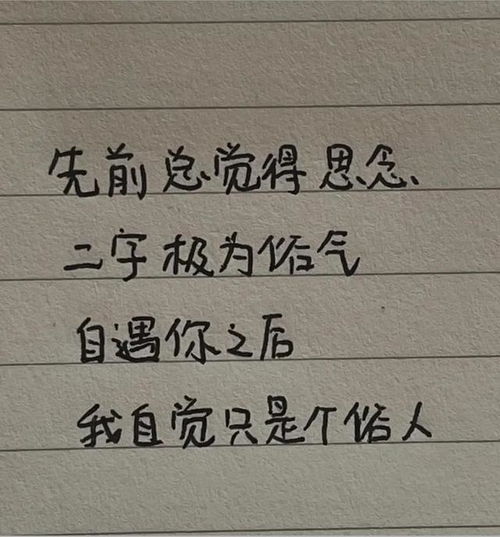 先前总觉得思念
二字极为俗气
自遇你之后
我自觉只是个俗人